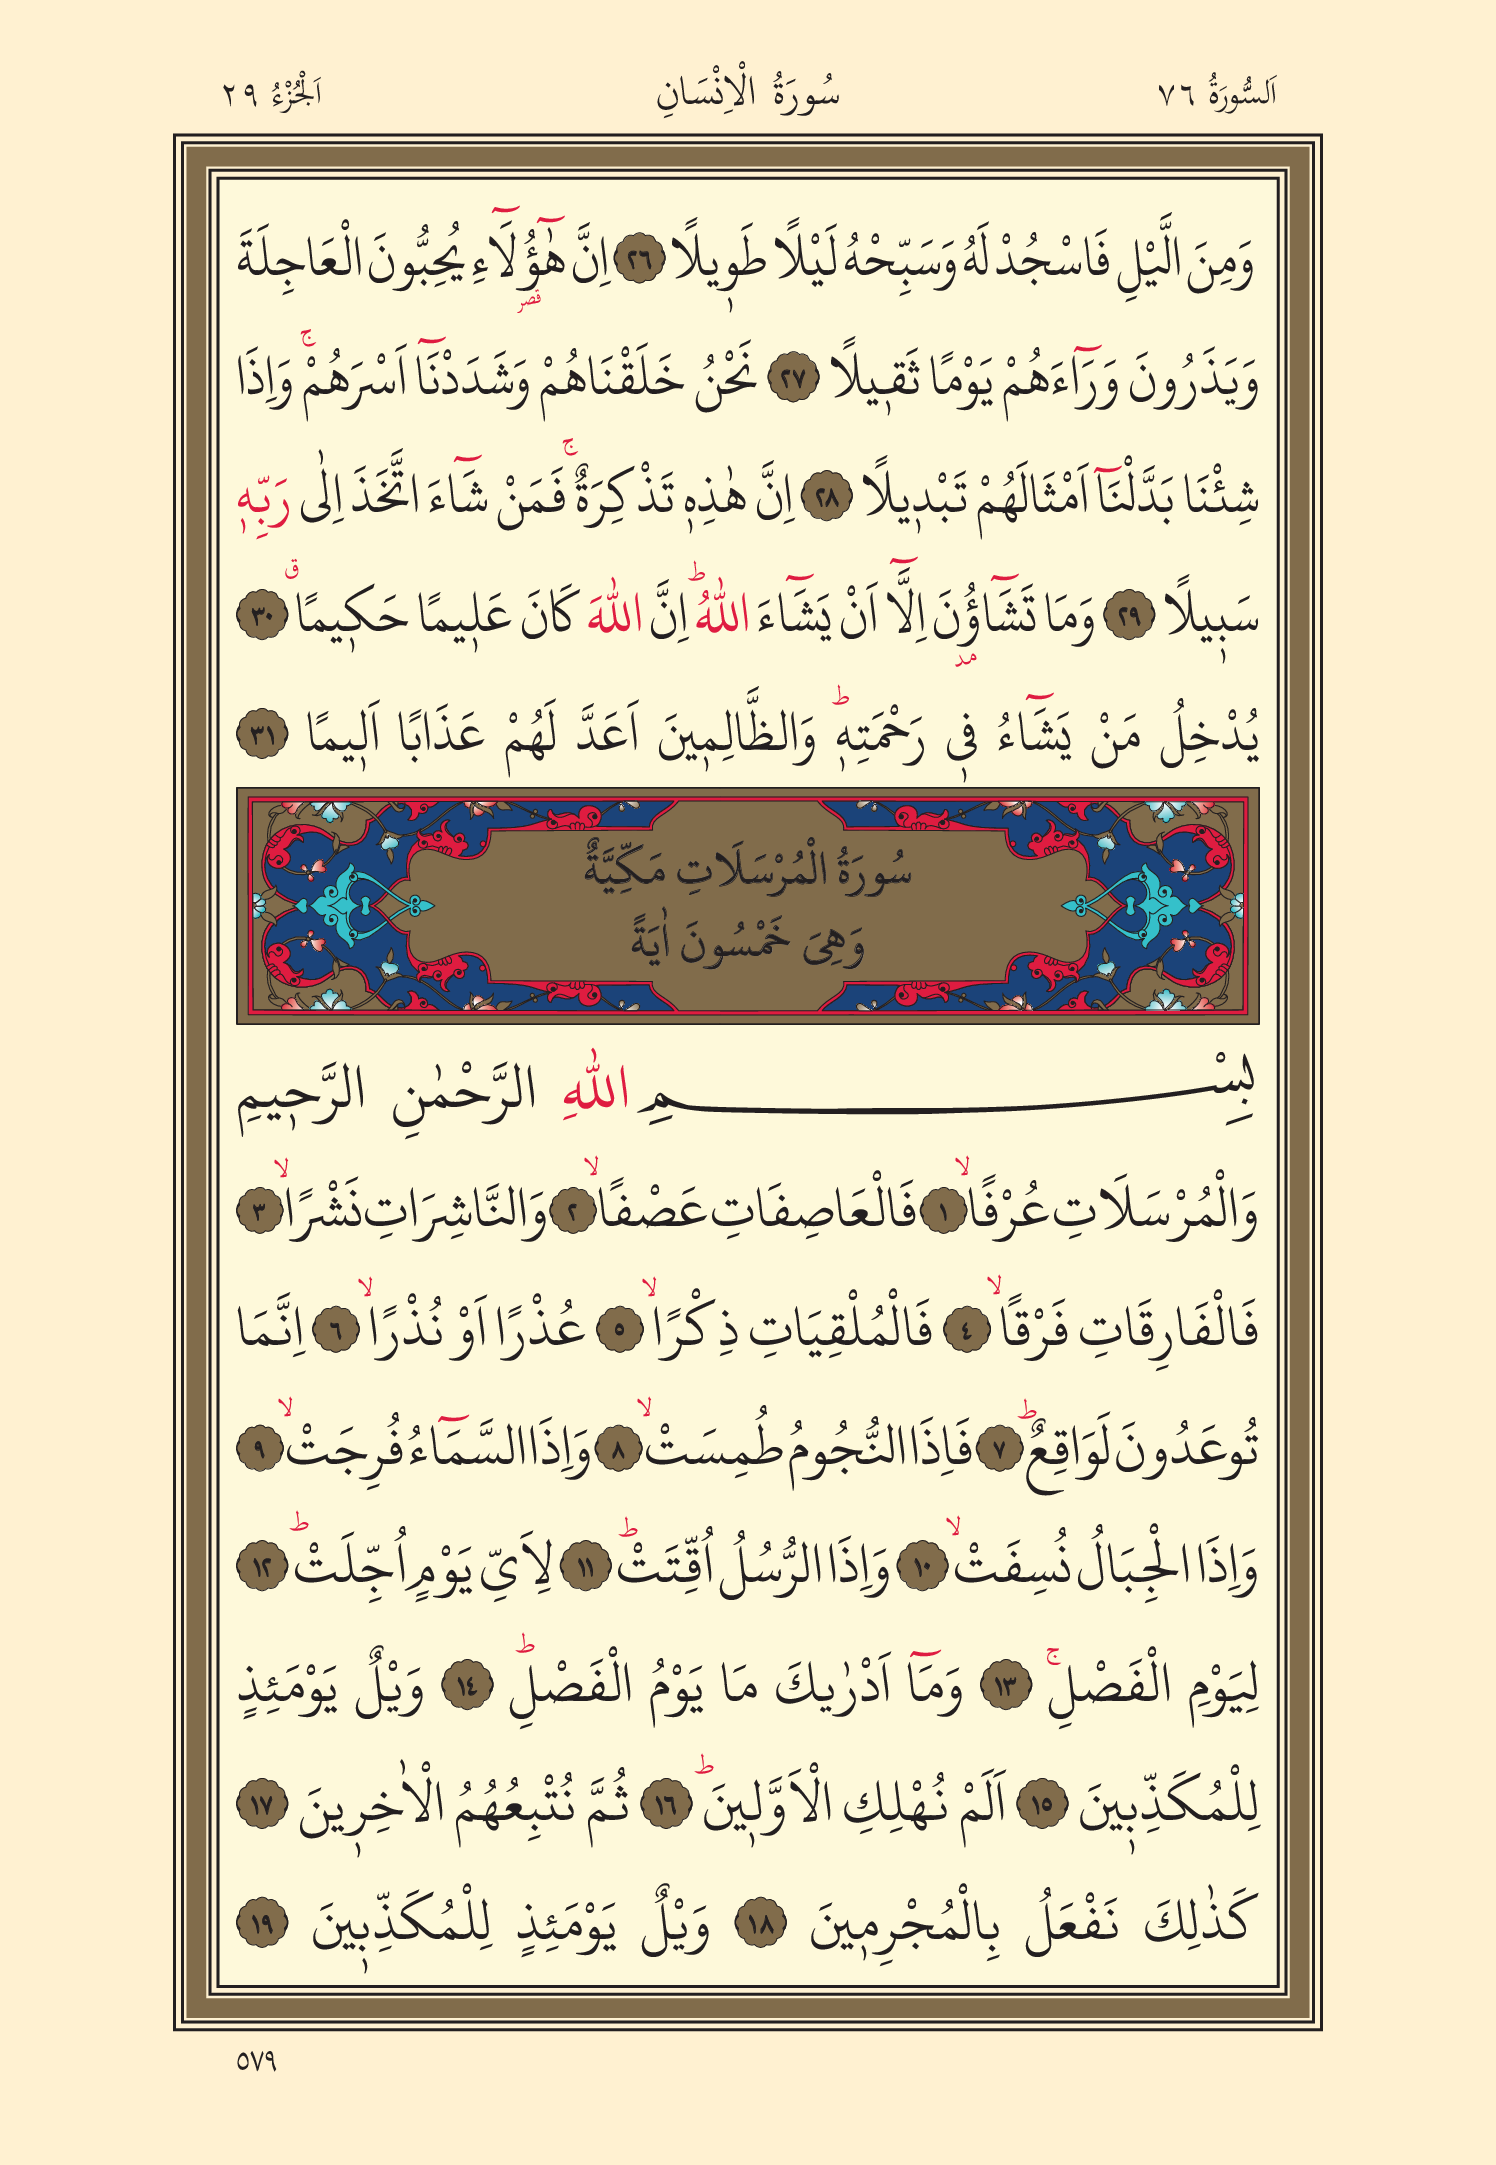 اَلسُّورَةُ ٧٦ سُورَةُ الْاِنْسَانِ اَلْجُزْءُ ٢٩
وَمِنَ الَّيْلِ فَاسْجُدْ لَهُ وَسَبِّحْهُ لَيْلًا طَوٖيلًا ٢٦ اِنَّ هٰٓؤُ۬لَٓاءِ يُحِبُّونَ الْعَاجِلَةَ
قصر
وَيَذَرُونَ وَرَٓاءَهُمْ يَوْمًا ثَقٖيلًا ٢٧ نَحْنُ خَلَقْنَاهُمْ وَشَدَدْنَٓا اَسْرَهُمْۚ وَاِذَا
شِئْنَا بَدَّلْنَٓا اَمْثَالَهُمْ تَبْدٖيلًا ٢٨ اِنَّ هٰذِهٖ تَذْكِرَةٌۚ فَمَنْ شَٓاءَ اتَّخَذَ اِلٰى رَبِّهٖ
سَبٖيلًا ٢٩ وَمَا تَشَٓاؤُ۫نَ اِلَّٓا اَنْ يَشَٓاءَ اللّٰهُؕ اِنَّ اللّٰهَ كَانَ عَلٖيمًا حَكٖيمًاࣗ ٣٠
مد
يُدْخِلُ مَنْ يَشَٓاءُ فٖي رَحْمَتِهٖؕ وَالظَّالِمٖينَ اَعَدَّ لَهُمْ عَذَابًا اَلٖيمًا ٣١
سُورَةُ الْمُرْسَلَاتِ مَكِّيَّةٌ
وَهِىَ خَمْسُونَ اٰيَةً
بِسْــــــــمِ اللّٰهِ الرَّحْمٰنِ الرَّحٖيمِ
وَالْمُرْسَلَاتِ عُرْفًاۙ ١ فَالْعَاصِفَاتِ عَصْفًاۙ ٢ وَالنَّاشِرَاتِ نَشْرًاۙ ٣
فَالْفَارِقَاتِ فَرْقًاۙ ٤ فَالْمُلْقِيَاتِ ذِكْرًاۙ ٥ عُذْرًا اَوْ نُذْرًاۙ ٦ اِنَّمَا
تُوعَدُونَ لَوَاقِعٌؕ ٧ فَاِذَا النُّجُومُ طُمِسَتْۙ ٨ وَاِذَا السَّمَٓاءُ فُرِجَتْۙ ٩
وَاِذَا الْجِبَالُ نُسِفَتْۙ ١٠ وَاِذَا الرُّسُلُ اُقِّتَتْؕ ١١ لِاَىِّ يَوْمٍ اُجِّلَتْؕ ١٢
لِيَوْمِ الْفَصْلِۚ ١٣ وَمَٓا اَدْرٰيكَ مَا يَوْمُ الْفَصْلِؕ ١٤ وَيْلٌ يَوْمَئِذٍ
لِلْمُكَذِّبٖينَ ١٥ اَلَمْ نُهْلِكِ الْاَوَّلٖينَؕ ١٦ ثُمَّ نُتْبِعُهُمُ الْاٰخِرٖينَ ١٧
كَذٰلِكَ نَفْعَلُ بِالْمُجْرِمٖينَ ١٨ وَيْلٌ يَوْمَئِذٍ لِلْمُكَذِّبٖينَ ١٩
٥٧٩